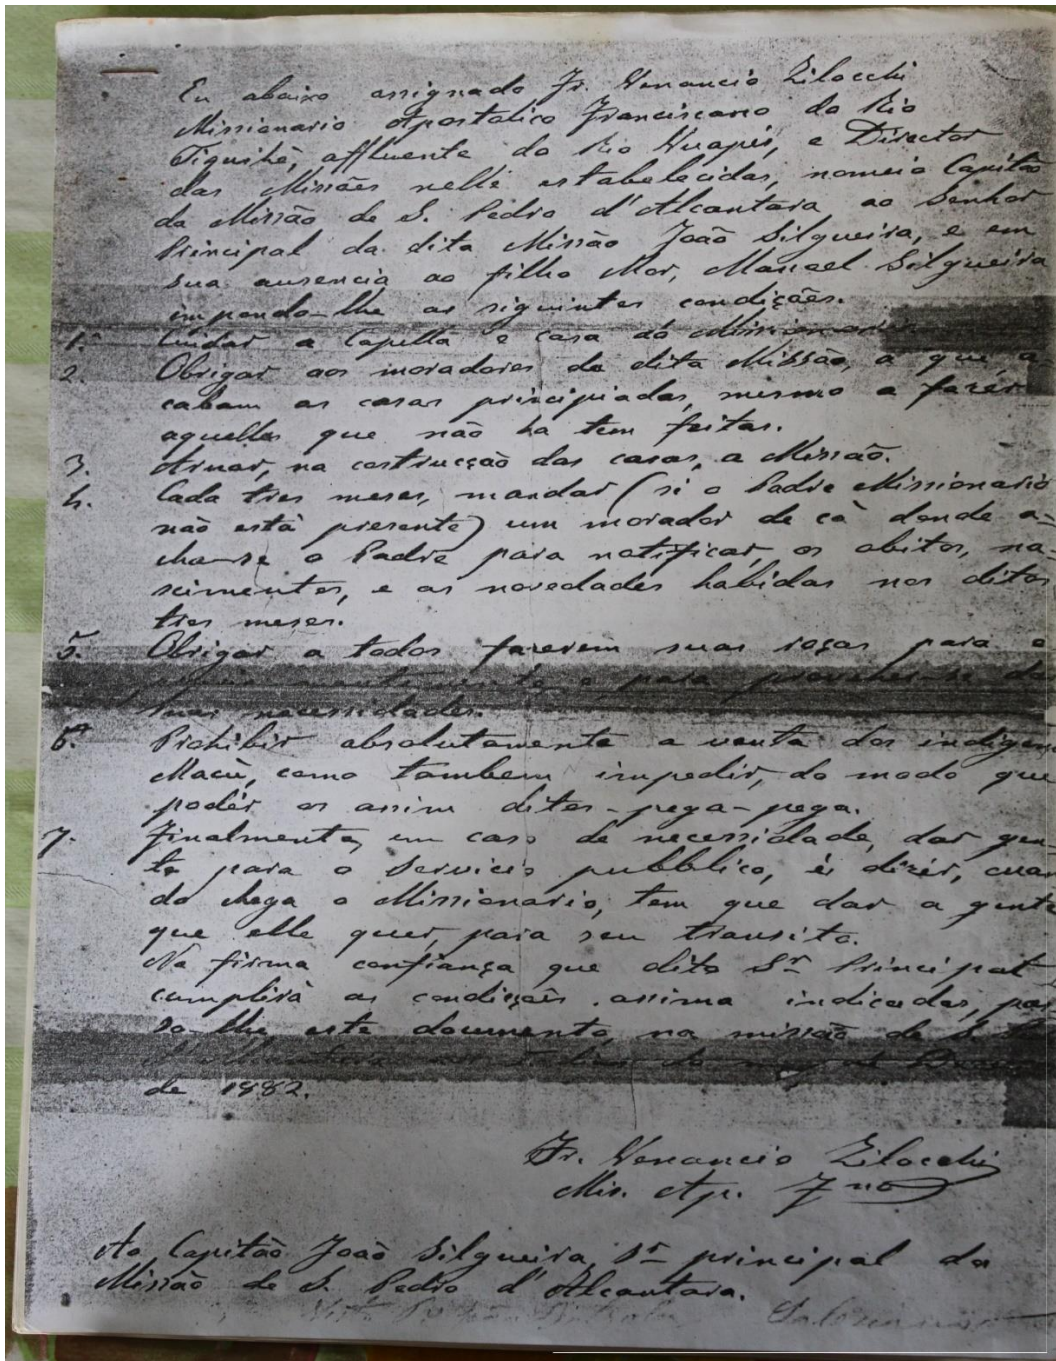 Eu abaixo assignado Fr. Venancio Zilocchi
Missionario Apostolico Franciscano do Rio
Tiquihè, affluente do Rio Uuapés, e Director
das Missões nelle estabelecidas, nomeio Capitão
da Missão de S. Pedro d'Alcantara, ao Senhor
Principal da dita Missão João Silgueira, e em
sua ausencia ao filho Mor, Manoel Silgueira
impondo-lhe as siguintes condições.
1.a Cuidar a Capella e casa do Missionario
2. Obrigar aos moradores da dita Missão, a que a-
cabam as casas principiadas, mesmo a fazér
aquellas que não ha tem feitas.
3. Arruar, na costrucção das casas, a Missão.
4. Cada tres meses, mandar (si o Padre Missionario
não está presente) um morador de cà donde a-
cha-se o Padre para notificar, os obitos, na-
scimentos, e as novedades habidas nos ditos
tres meses.
5. Obrigar a todos fazerem suas roças para o
mantimento e para provêr-se de
suas necessidades.
6.a Prohibir absolutamente a venta dos indigen
Macù, como tambem impedir, do modo que
podér os assim ditos-pega-pega.
7. Finalmente, em caso de necessidade, dar gen-
te para o servicio pubblico, è dizér, cuan
do chega o Missionario, tem que dar a gente
que elle quer, para seu transito.
Na firma confiança que dito Sr Principal
cumplirà as condiçoès assima indicadas, pas
so-lhe este documento, na missão de S.
d'Alcantara aos dias do
de 1882.
Fr. Venancio Zilocchi
Mis. Ap. Fno
Ao Capitão João Silgueira, Sr principal da
Missão de S. Pedro d'Alcantara.